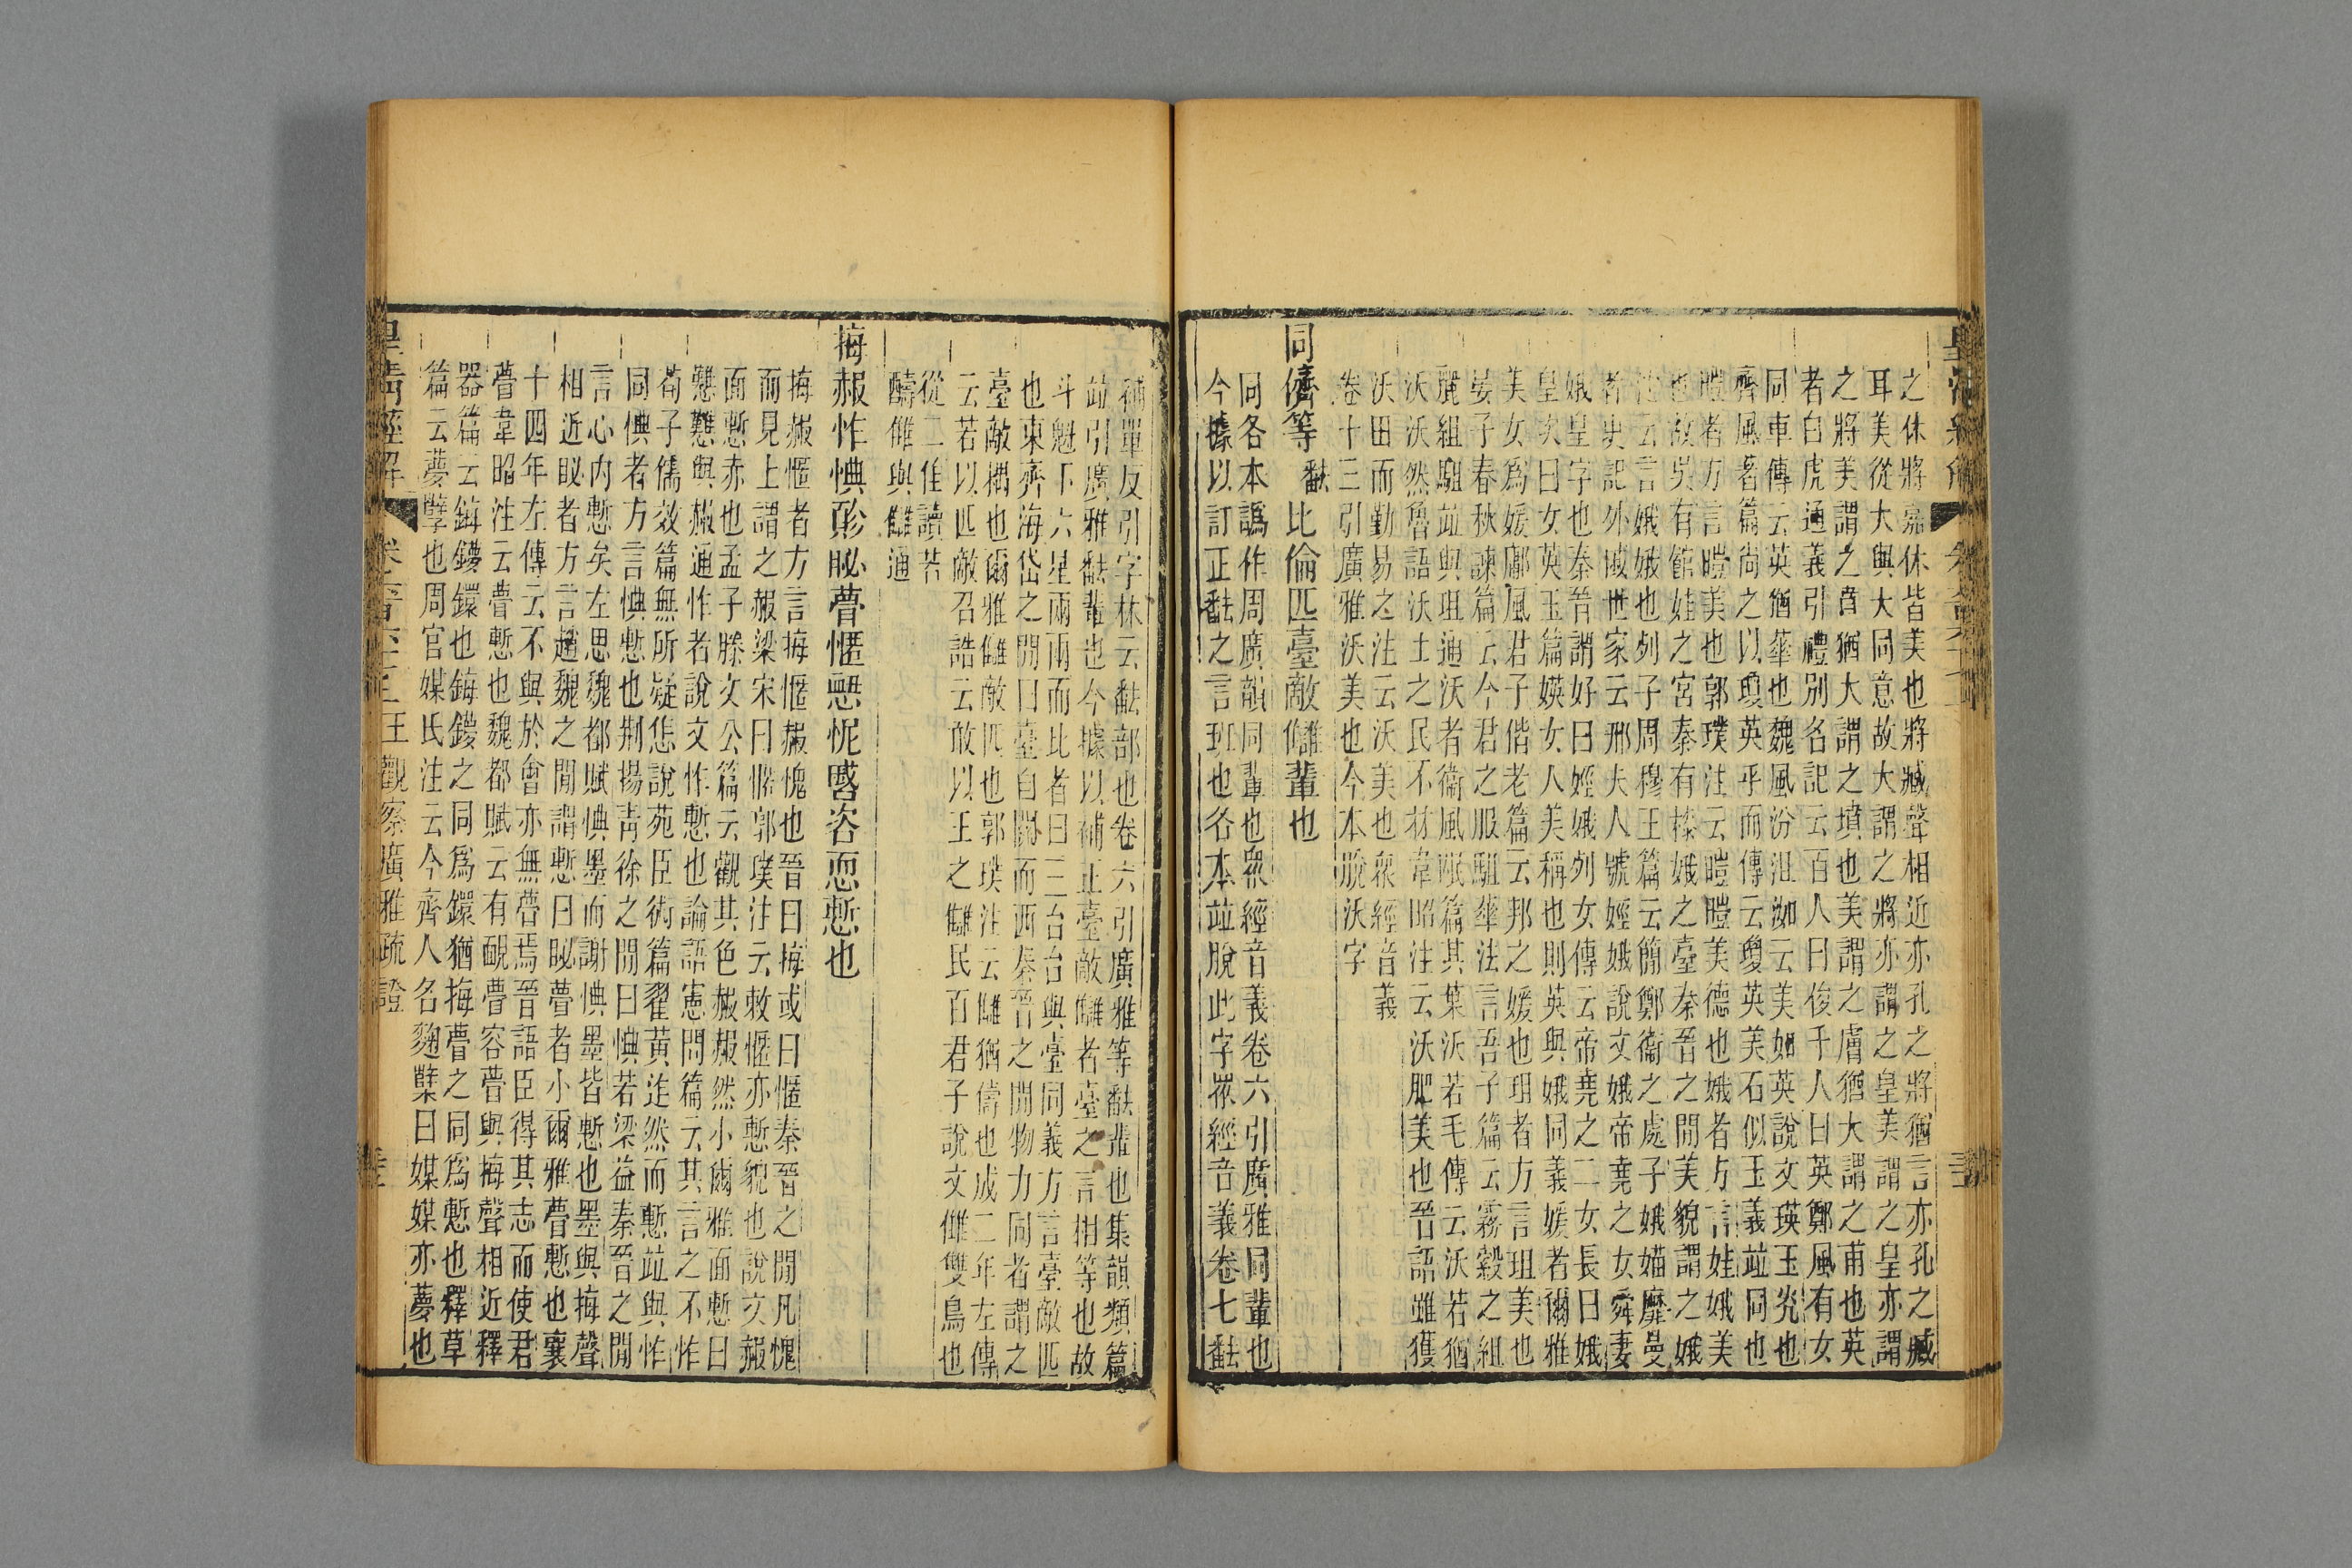 之休將嘉休皆美也將臧聲相近亦孔之將猶言亦孔之臧
耳美從大與大同意故大謂之將亦謂之皇美謂之皇亦謂
之將美謂之賁猶大謂之墳也美謂之膚猶大謂之甫也英
者白虎通義引禮別名記云百人曰俊千人曰英鄭風有女
同車傳云英猶華也魏風汾沮洳云美如英說文瑛玉光也
齊風著篇尚之以瓊英乎而傳云瓊英美石似玉義竝同也
暟者方言暟美也郭璞注云暟暟美德也娥者方言娃娥美
也故吳有館娃之宮秦有榛娥之臺秦晉之閒美貌謂之娥
注云言娥娥也列子周穆王篇云簡鄭衞之處子娥媌靡曼
者史記外戚世家云邢夫人號娙娥說文娥帝堯之女舜妻
娥皇字也秦晉謂好曰娙娥列女傳云帝堯之二女長曰娥
皇次曰女英玉篇媖女人美稱也則英與娥同義媛者爾雅
美女爲媛鄘風君子偕老篇云邦之媛也珇者方言珇美也
晏子春秋諫篇云今君之服駔華法言吾子篇云霧縠之組
麗組駔竝與珇通沃者衞風氓篇其葉沃若毛傳云沃若猶
沃沃然魯語沃土之民不材韋昭注云沃肥美也晉語雖獲
沃田而勤易之注云沃美也衆經音義
卷十三引廣雅沃美也今本脫沃字
同儕等㽬比倫匹臺敵讎輩也
同各本譌作周廣韻同輩也衆經音義卷六引廣雅同輩也
今據以訂正㽬之言班也各本竝脫此字衆經音義卷七㽬
補單反引字林云㽬部也卷六引廣雅等㽬輩也集韻類篇
竝引廣雅㽬輩也今據以補正臺敵讎者臺之言相等也故
斗魁下六星兩兩而比者曰三台台與臺同義方言臺敵匹
也東齊海岱之閒曰臺自關而西秦晉之閒物力同者謂之
臺敵耦也爾雅讎敵匹也郭璞注云讎猶儔也成二年左傳
云若以匹敵召誥云敢以王之讎民百君子說文雔雙鳥也
從二隹讀若
醻雔與讎通
挴赧怍㥏㣋䀣瞢㥾㥶忸䁅咨恧慙也
挴赧㥾者方言挴㥾赧愧也晉曰挴或曰㥾秦晉之閒凡愧
而見上謂之赧梁宋曰㥾郭璞注云敕㥾亦慙貌也說文赧
面慙赤也孟子滕文公篇云觀其色赧赧然小爾雅面慙曰
戁戁與赧通怍者說文怍慙也論語憲問篇云其言之不怍
荀子儒效篇無所疑㤰說苑臣術篇翟黃迮然而慙竝與怍
同㥏者方言㥏慙也荆揚靑徐之閒曰㥏若梁益秦晉之閒
言心內慙矣左思魏都賦㥏墨而謝㥏墨皆慙也墨與挴聲
相近䀣者方言趙魏之閒謂慙曰䀣瞢者小爾雅瞢慙也襄
十四年左傳云不與於會亦無瞢焉晉語臣得其志而使君
瞢韋昭注云瞢慙也魏都賦云有靦瞢容瞢與挴聲相近釋
器篇云鋂鍐鐶也鋂鍐之同爲鐶猶挴瞢之同爲慙也釋草
篇云夢孽也周官媒氏注云今齊人名麴𪍿曰媒媒亦夢也
皇淸經解
卷六百六十七上王觀察廣雅疏證